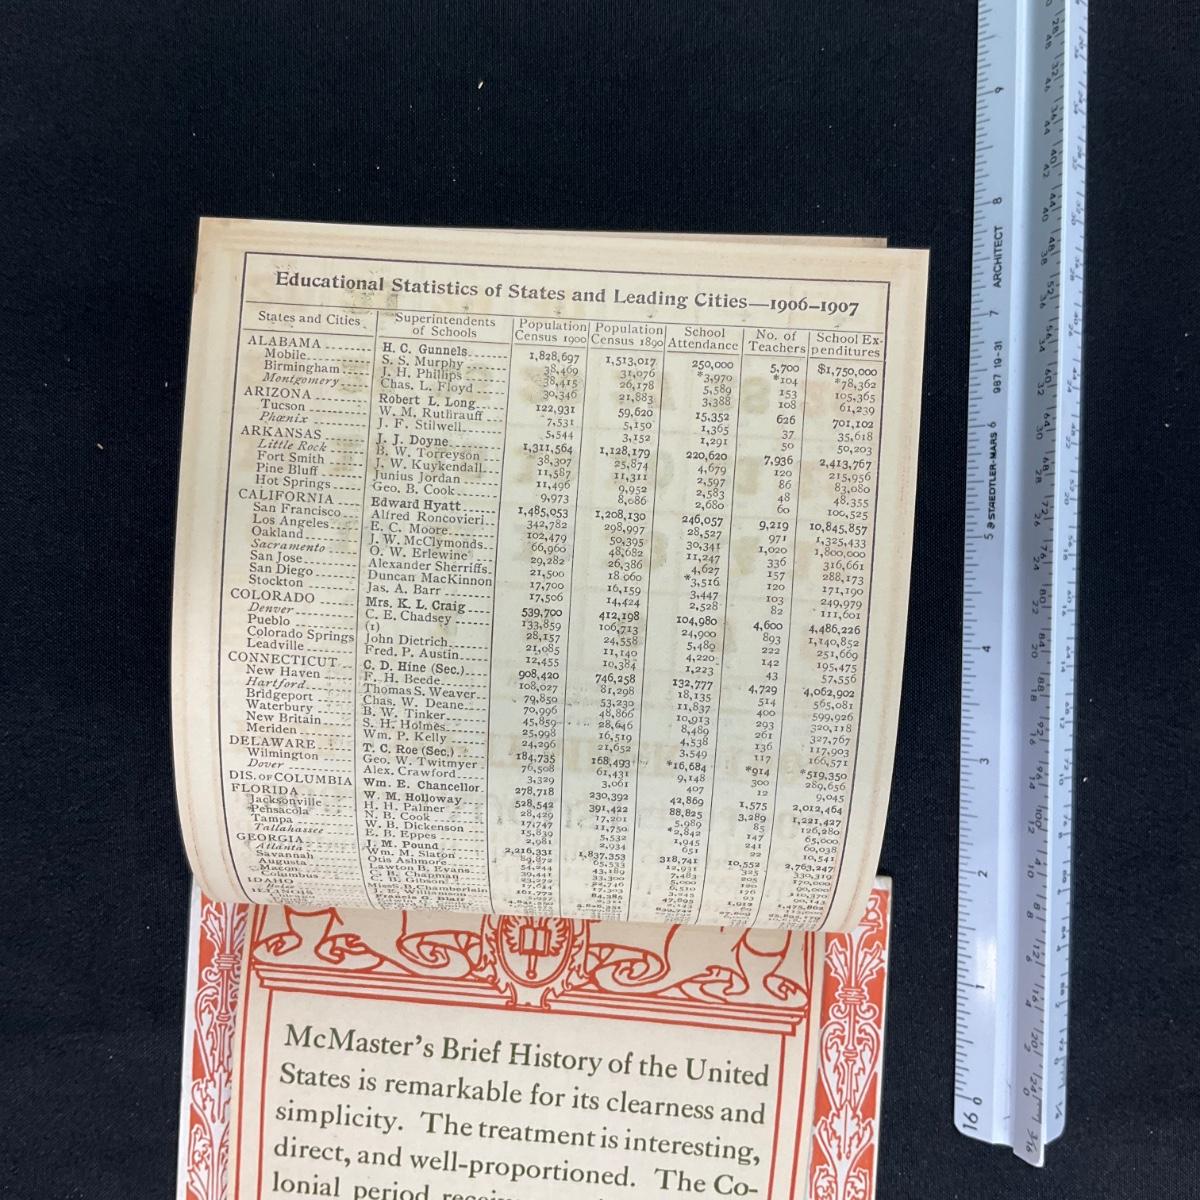 Educational Statistics of States and Leading Cities—1906–1907
States and Cities Superintendents of Schools Population Census 1900 Population Census 1890 School Attendance No. of Teachers School Expenditures
ALABAMA H. C. Gunnels 1,828,697 1,513,017 250,000 5,700 $1,750,000
Mobile S. S. Murphy 38,469 31,076 *3,970 *104 *78,362
Birmingham J. H. Phillips 38,415 26,178 5,589 153 105,365
Montgomery Chas. L. Floyd 30,346 21,883 3,388 108 61,239
ARIZONA Robert L. Long 122,931 59,620 15,352 626 701,102
Tucson W. M. Ruthrauff 7,531 5,150 1,365 37 35,618
Phœnix J. F. Stilwell 5,544 3,152 1,291 50 50,203
ARKANSAS J. J. Doyne 1,311,564 1,128,179 220,620 7,936 2,413,767
Little Rock B. W. Torreyson 38,307 25,874 4,679 120 215,956
Fort Smith J. W. Kuykendall 11,587 11,311 2,597 86 83,080
Pine Bluff Junius Jordan 11,496 9,952 2,583 48 48,355
Hot Springs Geo. B. Cook 9,973 8,086 2,680 60 100,525
CALIFORNIA Edward Hyatt 1,485,053 1,208,130 246,057 9,219 10,845,857
San Francisco Alfred Roncovieri 342,782 298,997 28,527 971 1,325,433
Los Angeles E. C. Moore 102,479 50,395 30,341 1,020 1,800,000
Oakland J. W. McClymonds 66,960 48,682 11,247 336 316,661
Sacramento O. W. Erlewine 29,282 26,386 4,627 157 288,173
San Jose Alexander Sherriffs 21,500 18,060 *3,516 120 171,190
San Diego Duncan MacKinnon 17,700 16,159 3,447 103 249,979
Stockton Jas. A. Barr 17,506 14,424 2,528 82 111,601
COLORADO Mrs. K. L. Craig 539,700 412,198 104,980 4,600 4,486,226
Denver C. E. Chadsey 133,859 106,713 24,900 893 1,140,852
Pueblo (1) 28,157 24,558 5,489 222 251,669
Colorado Springs John Dietrich 21,085 11,140 4,220 142 195,475
Leadville Fred. P. Austin 12,455 10,384 1,223 43 57,556
CONNECTICUT C. D. Hine (Sec.) 908,420 746,258 132,777 4,729 4,062,902
New Haven F. H. Beede 108,027 81,298 18,135 514 565,081
Hartford Thomas S. Weaver 79,850 53,230 11,837 400 599,926
Bridgeport Chas. W. Deane 70,996 48,866 10,913 293 320,118
Waterbury B. W. Tinker 45,859 28,646 8,489 261 327,767
New Britain S. H. Holmes 25,998 16,519 4,538 136 117,903
Meriden Wm. P. Kelly 24,296 21,652 3,549 117 166,571
DELAWARE T. C. Roe (Sec.) 184,735 168,493 *16,684 *914 *519,350
Wilmington Geo. W. Twitmyer 76,508 61,431 9,148 300 289,656
Dover Alex. Crawford 3,329 3,061 407 12 9,045
DIS. OF COLUMBIA Wm. E. Chancellor 278,718 230,392 42,869 1,575 2,012,464
FLORIDA W. M. Holloway 528,542 391,422 88,825 3,289 1,221,427
Jacksonville H. H. Palmer 28,429 17,201 5,989 85 126,280
Pensacola N. B. Cook 17,747 11,750 *2,842
Tampa W. B. Dickenson 15,839 5,532 1,945
Tallahassee E. B. Eppes 2,981 2,934 651 22 10,541
GEORGIA J. M. Pound 2,216,331 1,837,353 318,741 10,552 2,763,247
Atlanta Wm. M. Slaton 89,872 65,533 12,931 325
Savannah Otis Ashmore 54,244 43,189 7,483
Augusta Lawton B. Evans 39,441 33,300
Macon C. B. Chapman
Columbus C. B. Gibson
IDAHO
McMaster's Brief History of the United
States is remarkable for its clearness and
simplicity. The treatment is interesting,
direct, and well-proportioned. The Co-
lonial period
5 STAEDTLER-MARS 987 19-31 ARCHITECT
16
0 1 2 3 4 5 6 7 8 9